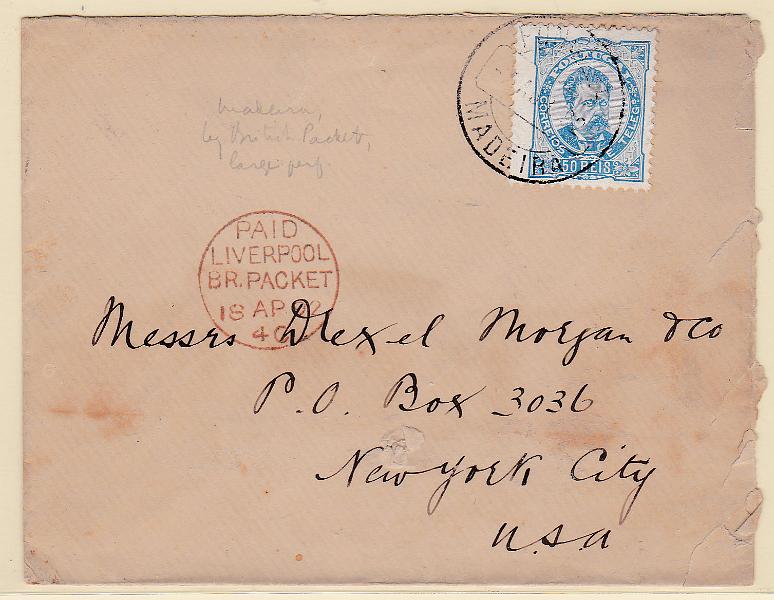 PORTUGAL
CORREIOS
TELEG.
50 REIS
MADEIRA
Madeira,
by British Packet,
large perf.
PAID
LIVERPOOL
BR. PACKET
18 AP 92
4C
Messrs Drexel Morgan & Co
P.O. Box 3036
New York City
U.S.A